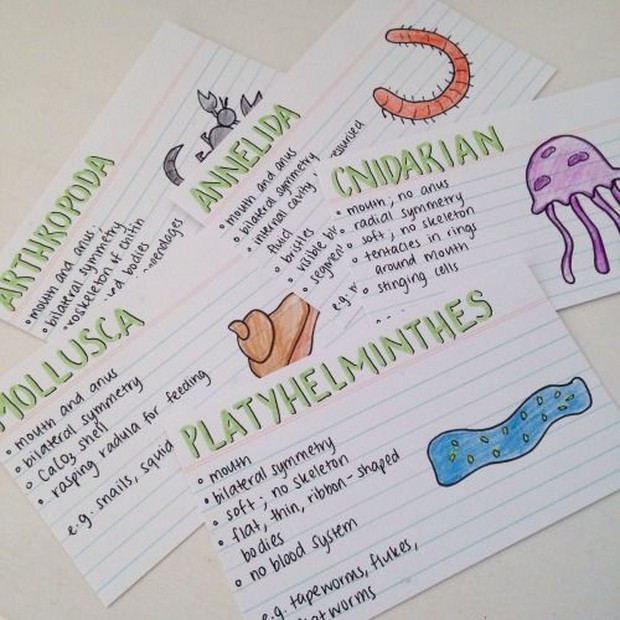 ARTHROPODA
• mouth and anus
• bilateral symmetry
of chitin
bodies
ANNELIDA
• mouth and anus
• bilateral symmetry
• internal cavity
fluid
• bristles
• visible
• segmen
CNIDARIAN
• mouth; no anus
• radial symmetry
• soft; no skeleton
• tentacles in rings
around mouth
• stinging cells
MOLLUSCA
• mouth and anus
• bilateral symmetry
• CaCO₃ shell
• rasping radula for feeding
e.g. snails, squid
PLATYHELMINTHES
• mouth
• bilateral symmetry
• soft; no skeleton
• flat, thin, ribbon-shaped
bodies
• no blood system
e.g. tapeworms, flukes,